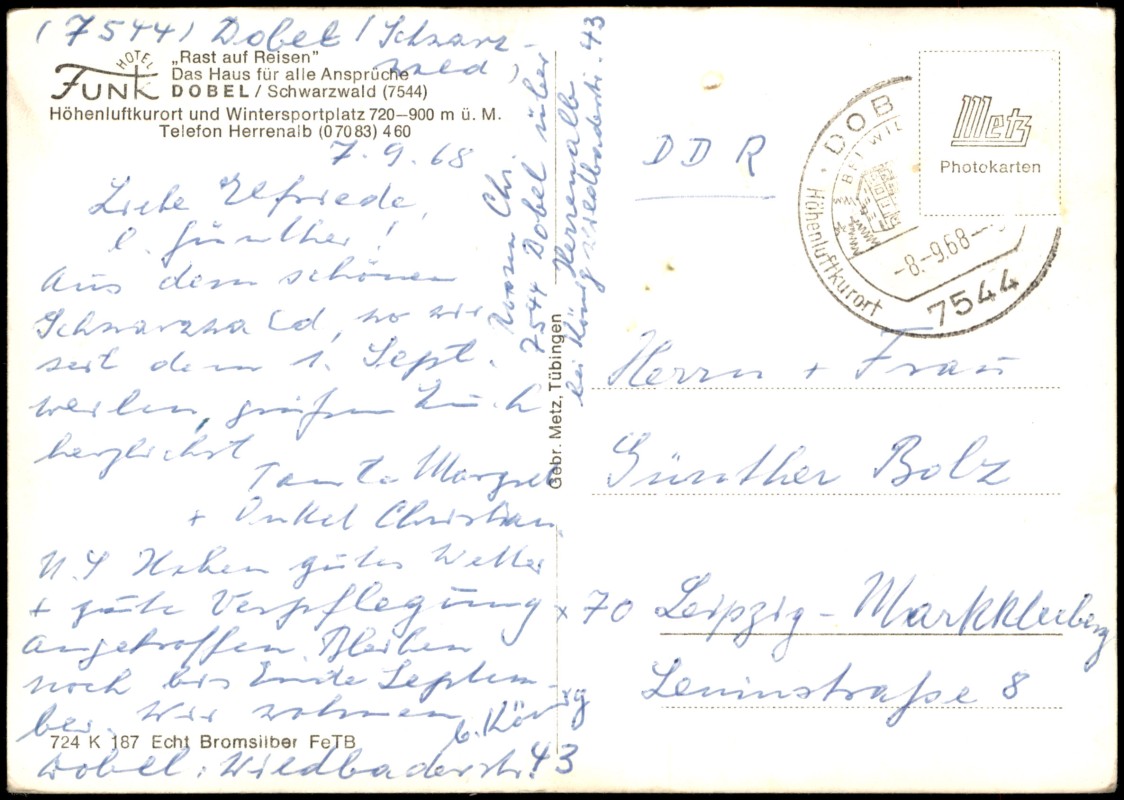 (7544) Dobel / Schwarz-
wald)
HOTEL
FUNK
„Rast auf Reisen"
Das Haus für alle Ansprüche
DOBEL / Schwarzwald (7544)
Höhenluftkurort und Wintersportplatz 720–900 m ü. M.
Telefon Herrenalb (07083) 460
7.9.68
Liebe Elfriede,
l. Günther!
Aus dem schönen
Schwarzwald, wo wir
seit dem 1. Sept.
weilen, grüßen Euch
herzlichst
Tante Margret
+ Onkel Christian
N.S Haben gutes Wetter
+ gute Verpflegung
angetroffen. Bleiben
noch bis Ende Septem-
ber. Wir wohnen
b. König
Dobel: Wildbaderstr. 43
724 K 187 Echt Bromsilber FeTB
Chr.
7544 Dobel über
Herrenalb
bei König Wildbaderstr. 43
Gebr. Metz, Tübingen
DDR
DOB
BEI WIL
Höhenluftkurort
-8.-9.68-
7544
Metz
Photokarten
Herrn + Frau
Günther Bolz
x 70 Leipzig-Markkleeberg
Leninstraße 8